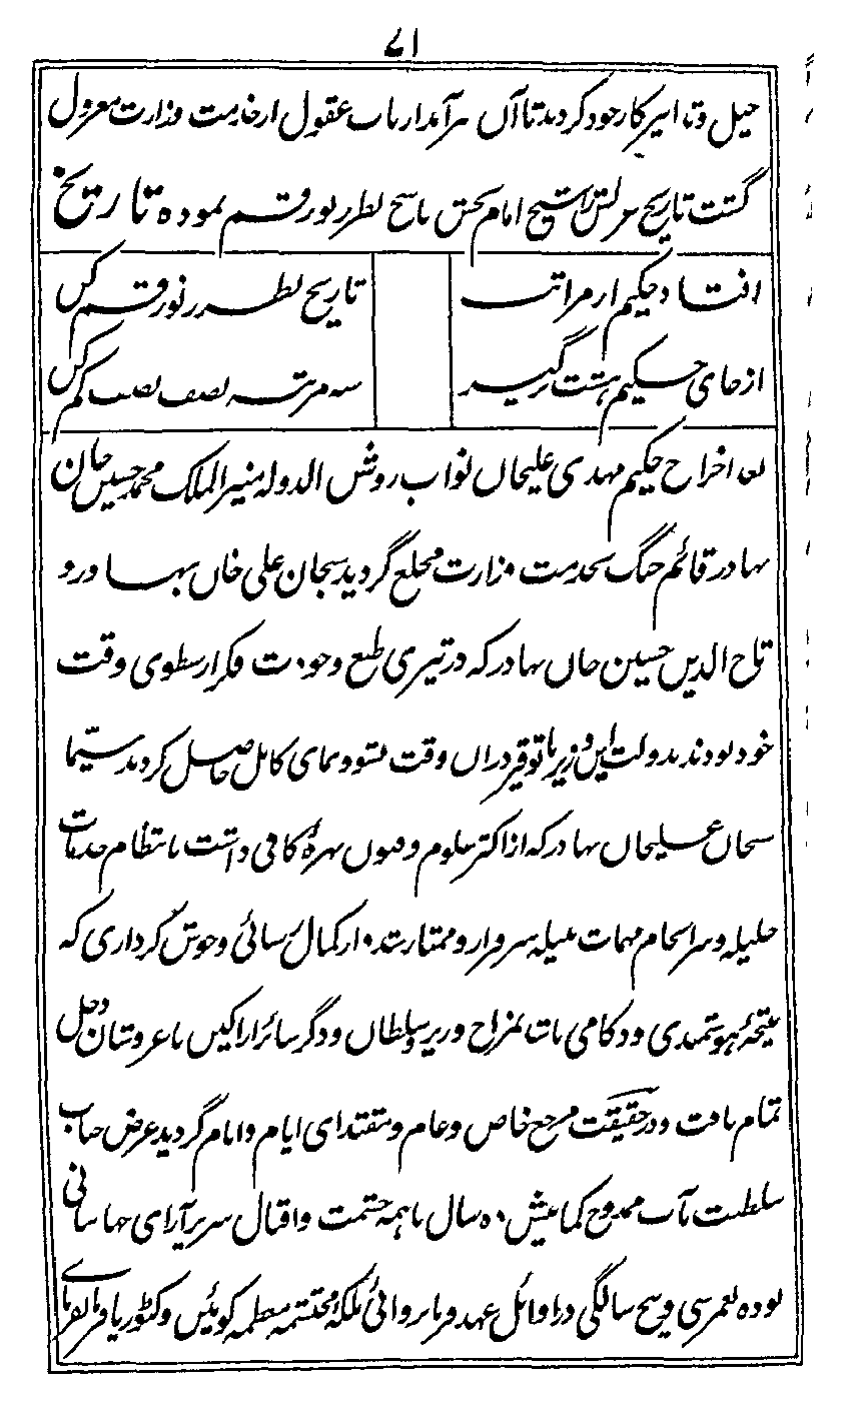 ۷۱
حیل و تدابیر کار خود کردند تا آں سرآمد ارباب عقول از خدمت وزارت معزول
گشت تاریخ عزلش شیخ امام بخش ناسخ بطرز نو رقم نموده تاریخ
افتاد حکیم از مراتب تاریخ بطرز نو رقم کن
از جای حکیم هشت برگیر سه مرتبه نصف نصف کم کن
بعد اخراج حکیم مهدی علیخاں نواب روشن الدوله منیر الملک محمد حسین خان
بهادر قائم جنگ بخدمت وزارت مخلع گردید سبحان علی خاں بهادر و
تاج الدین حسین خاں بهادر که در تیزی طبع وجودت فکر ارسطوی وقت
خود بودند بدولت این وزیر با توقیر دراں وقت نشو و نمای کامل حاصل کردند سیّما
سبحاں علیخاں بهادر که از اکثر علوم و فنوں بهرۂ کافی داشت بانتظام خدمات
جلیله و سرانجام مهمات نبیله سرفراز و ممتاز شده از کمال رسائی و خوش کرداری که
نتیجۂ هوشمندی و دکامی باشد بمزاج وزیر و سلطاں و دگر سائر اراکیں با عز و شان دخل
تمام یافت و در حقیقت مرجع خاص و عام و مقتدای ایام و انام گردید غرض جناب
سلطنت مآب ممدوح کمابیش ده سال باهمه حشمت و اقبال سریر آرای جهانبانی
بوده بعمر سی و پنج سالگی در اوائل عهد فرمانروائی ملکۂ محتشمه معظمه کوئیں وکٹوریا فرمانفرمای